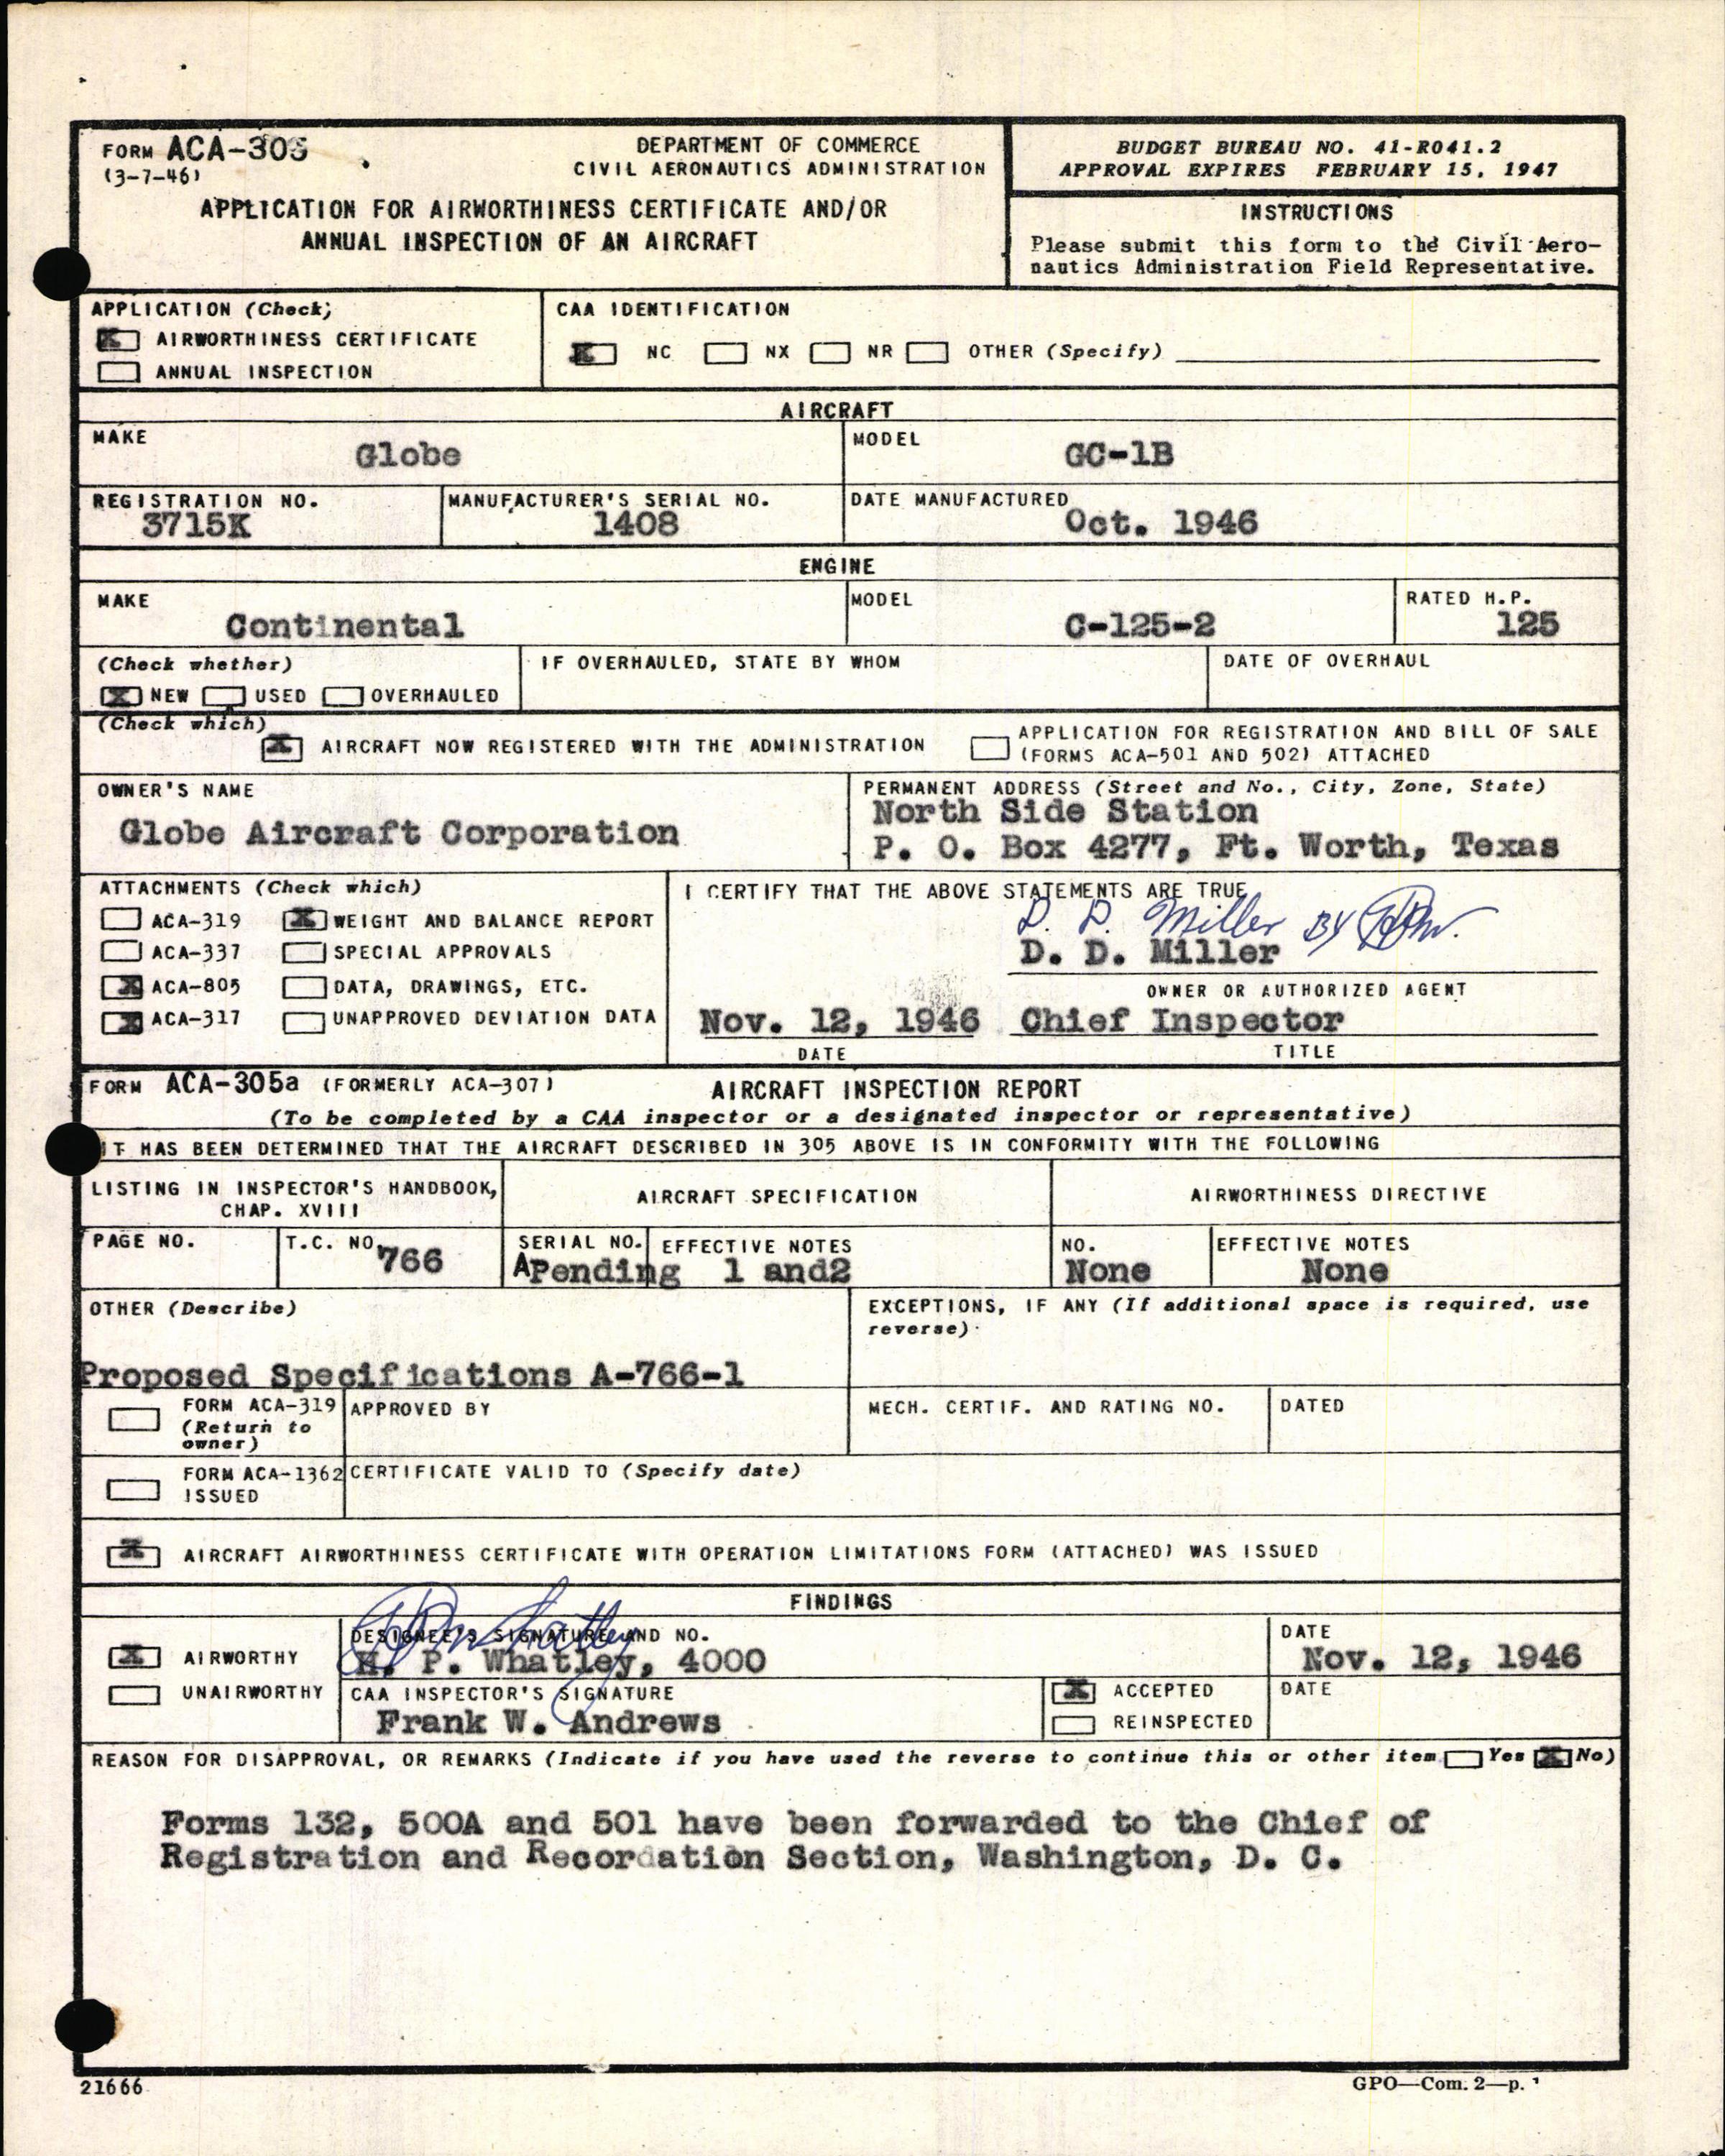 FORM ACA-305
(3-7-46)
DEPARTMENT OF COMMERCE
CIVIL AERONAUTICS ADMINISTRATION
APPLICATION FOR AIRWORTHINESS CERTIFICATE AND/OR
ANNUAL INSPECTION OF AN AIRCRAFT
BUDGET BUREAU NO. 41-R041.2
APPROVAL EXPIRES FEBRUARY 15, 1947
INSTRUCTIONS
Please submit this form to the Civil Aero-
nautics Administration Field Representative.
APPLICATION (Check)
X AIRWORTHINESS CERTIFICATE
ANNUAL INSPECTION
CAA IDENTIFICATION
X NC NX NR OTHER (Specify)
AIRCRAFT
MAKE
Globe
MODEL
GC-1B
REGISTRATION NO.
3715K
MANUFACTURER'S SERIAL NO.
1408
DATE MANUFACTURED
Oct. 1946
ENGINE
MAKE
Continental
MODEL
C-125-2
RATED H.P.
125
(Check whether)
X NEW USED OVERHAULED
IF OVERHAULED, STATE BY WHOM
DATE OF OVERHAUL
(Check which)
X AIRCRAFT NOW REGISTERED WITH THE ADMINISTRATION
APPLICATION FOR REGISTRATION AND BILL OF SALE
(FORMS ACA-501 AND 502) ATTACHED
OWNER'S NAME
Globe Aircraft Corporation
PERMANENT ADDRESS (Street and No., City, Zone, State)
North Side Station
P. O. Box 4277, Ft. Worth, Texas
ATTACHMENTS (Check which)
ACA-319 X WEIGHT AND BALANCE REPORT
ACA-337 SPECIAL APPROVALS
X ACA-805 DATA, DRAWINGS, ETC.
X ACA-317 UNAPPROVED DEVIATION DATA
I CERTIFY THAT THE ABOVE STATEMENTS ARE TRUE
D. D. Miller By
D. D. Miller
OWNER OR AUTHORIZED AGENT
Nov. 12, 1946 Chief Inspector
DATE TITLE
FORM ACA-305a (FORMERLY ACA-307) AIRCRAFT INSPECTION REPORT
(To be completed by a CAA inspector or a designated inspector or representative)
IT HAS BEEN DETERMINED THAT THE AIRCRAFT DESCRIBED IN 305 ABOVE IS IN CONFORMITY WITH THE FOLLOWING
LISTING IN INSPECTOR'S HANDBOOK,
CHAP. XVIII
AIRCRAFT SPECIFICATION
AIRWORTHINESS DIRECTIVE
PAGE NO.
T.C. NO.
766
SERIAL NO.
APending
EFFECTIVE NOTES
1 and2
NO.
None
EFFECTIVE NOTES
None
OTHER (Describe)
Proposed Specifications A-766-1
EXCEPTIONS, IF ANY (If additional space is required, use
reverse)
FORM ACA-319
(Return to
owner)
APPROVED BY
MECH. CERTIF. AND RATING NO.
DATED
FORM ACA-1362
ISSUED
CERTIFICATE VALID TO (Specify date)
X AIRCRAFT AIRWORTHINESS CERTIFICATE WITH OPERATION LIMITATIONS FORM (ATTACHED) WAS ISSUED
FINDINGS
X AIRWORTHY
UNAIRWORTHY
DESIGNEE'S SIGNATURE AND NO.
H. P. Whatley, 4000
DATE
Nov. 12, 1946
CAA INSPECTOR'S SIGNATURE
Frank W. Andrews
X ACCEPTED
REINSPECTED
DATE
REASON FOR DISAPPROVAL, OR REMARKS (Indicate if you have used the reverse to continue this or other item Yes X No)
Forms 132, 500A and 501 have been forwarded to the Chief of
Registration and Recordation Section, Washington, D. C.
21666
GPO—Com. 2—p.